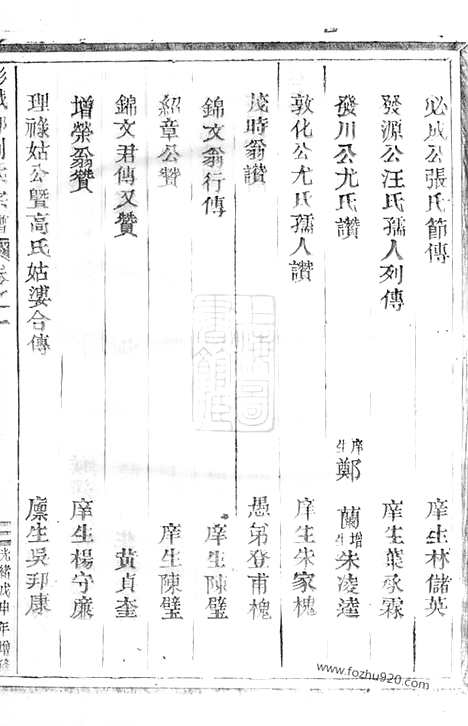 必成公張氏節傳 庠生林儲英
發源公汪氏孺人列傳 庠生葉承霖
發川公尤氏讚 庠生鄭蘭 增生朱凌逵
敦化公尤氏孺人讚 庠生朱家槐
茂時翁讚 愚弟登甫槐
錦文翁行傳 庠生陳璧
紹章公贊 庠生陳璧
錦文君傳又贊 黃貞奎
增榮翁贊 庠生楊守廉
理祿姑公暨高氏姑婆合傳 廩生吳邦康
光緒戊申年增修
www.fozhu920.com